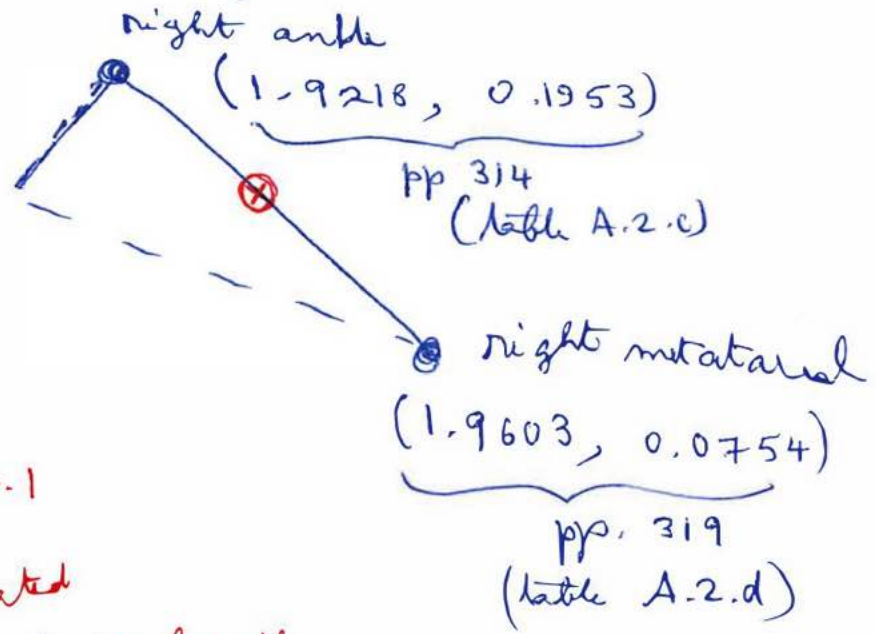 right ankle
(1.9218, 0.1953)
pp 314
(table A.2.c)
right metatarsal
(1.9603, 0.0754)
pp. 319
(table A.2.d)
.1
ted